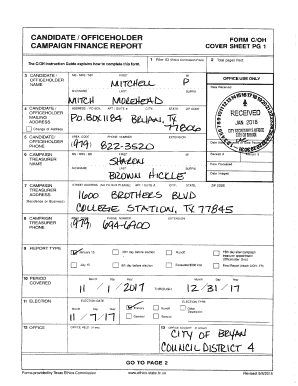 CANDIDATE / OFFICEHOLDER FORM C/OH
CAMPAIGN FINANCE REPORT COVER SHEET PG 1
The C/OH Instruction Guide explains how to complete this form. 1 Filer ID (Ethics Commission Filers) 2 Total pages filed:
3 CANDIDATE / OFFICEHOLDER NAME MS / MRS / MR FIRST MI
MITCHELL P
NICKNAME LAST SUFFIX
MITCH MOREHEAD
OFFICE USE ONLY
Date Received
RECEIVED
JAN 2018
CITY SECRETARY'S OFFICE
4 CANDIDATE / OFFICEHOLDER MAILING ADDRESS ADDRESS / PO BOX; APT / SUITE #; CITY; STATE; ZIP CODE
P.O. BOX 1184 BRYAN, TX
77806
Change of Address
5 CANDIDATE / OFFICEHOLDER PHONE AREA CODE PHONE NUMBER EXTENSION
(979) 822-3520
6 CAMPAIGN TREASURER NAME MS / MRS / MR FIRST MI
SHARON
NICKNAME LAST SUFFIX
BROWN HICKLE
Receipt # Amount $
Date Processed
Date Imaged
7 CAMPAIGN TREASURER ADDRESS (Residence or Business) STREET ADDRESS (NO PO BOX PLEASE); APT / SUITE #; CITY; STATE; ZIP CODE
1600 BROTHERS BLVD
COLLEGE STATION, TX 77845
8 CAMPAIGN TREASURER PHONE AREA CODE PHONE NUMBER EXTENSION
(979) 694-6900
9 REPORT TYPE January 15 30th day before election Runoff 15th day after campaign treasurer appointment (Officeholder Only)
July 15 8th day before election Exceeded $500 limit Final Report (Attach C/OH - FR)
10 PERIOD COVERED Month Day Year Month Day Year
11 / 1 / 2017 THROUGH 12/31/17
11 ELECTION ELECTION DATE ELECTION TYPE
Month Day Year Primary Runoff Other Description
11/7/17 General Special
12 OFFICE OFFICE HELD (if any) 13 OFFICE SOUGHT (if known)
CITY OF BRYAN
COUNCIL DISTRICT 4
GO TO PAGE 2
Forms provided by Texas Ethics Commission www.ethics.state.tx.us Revised 9/8/2015